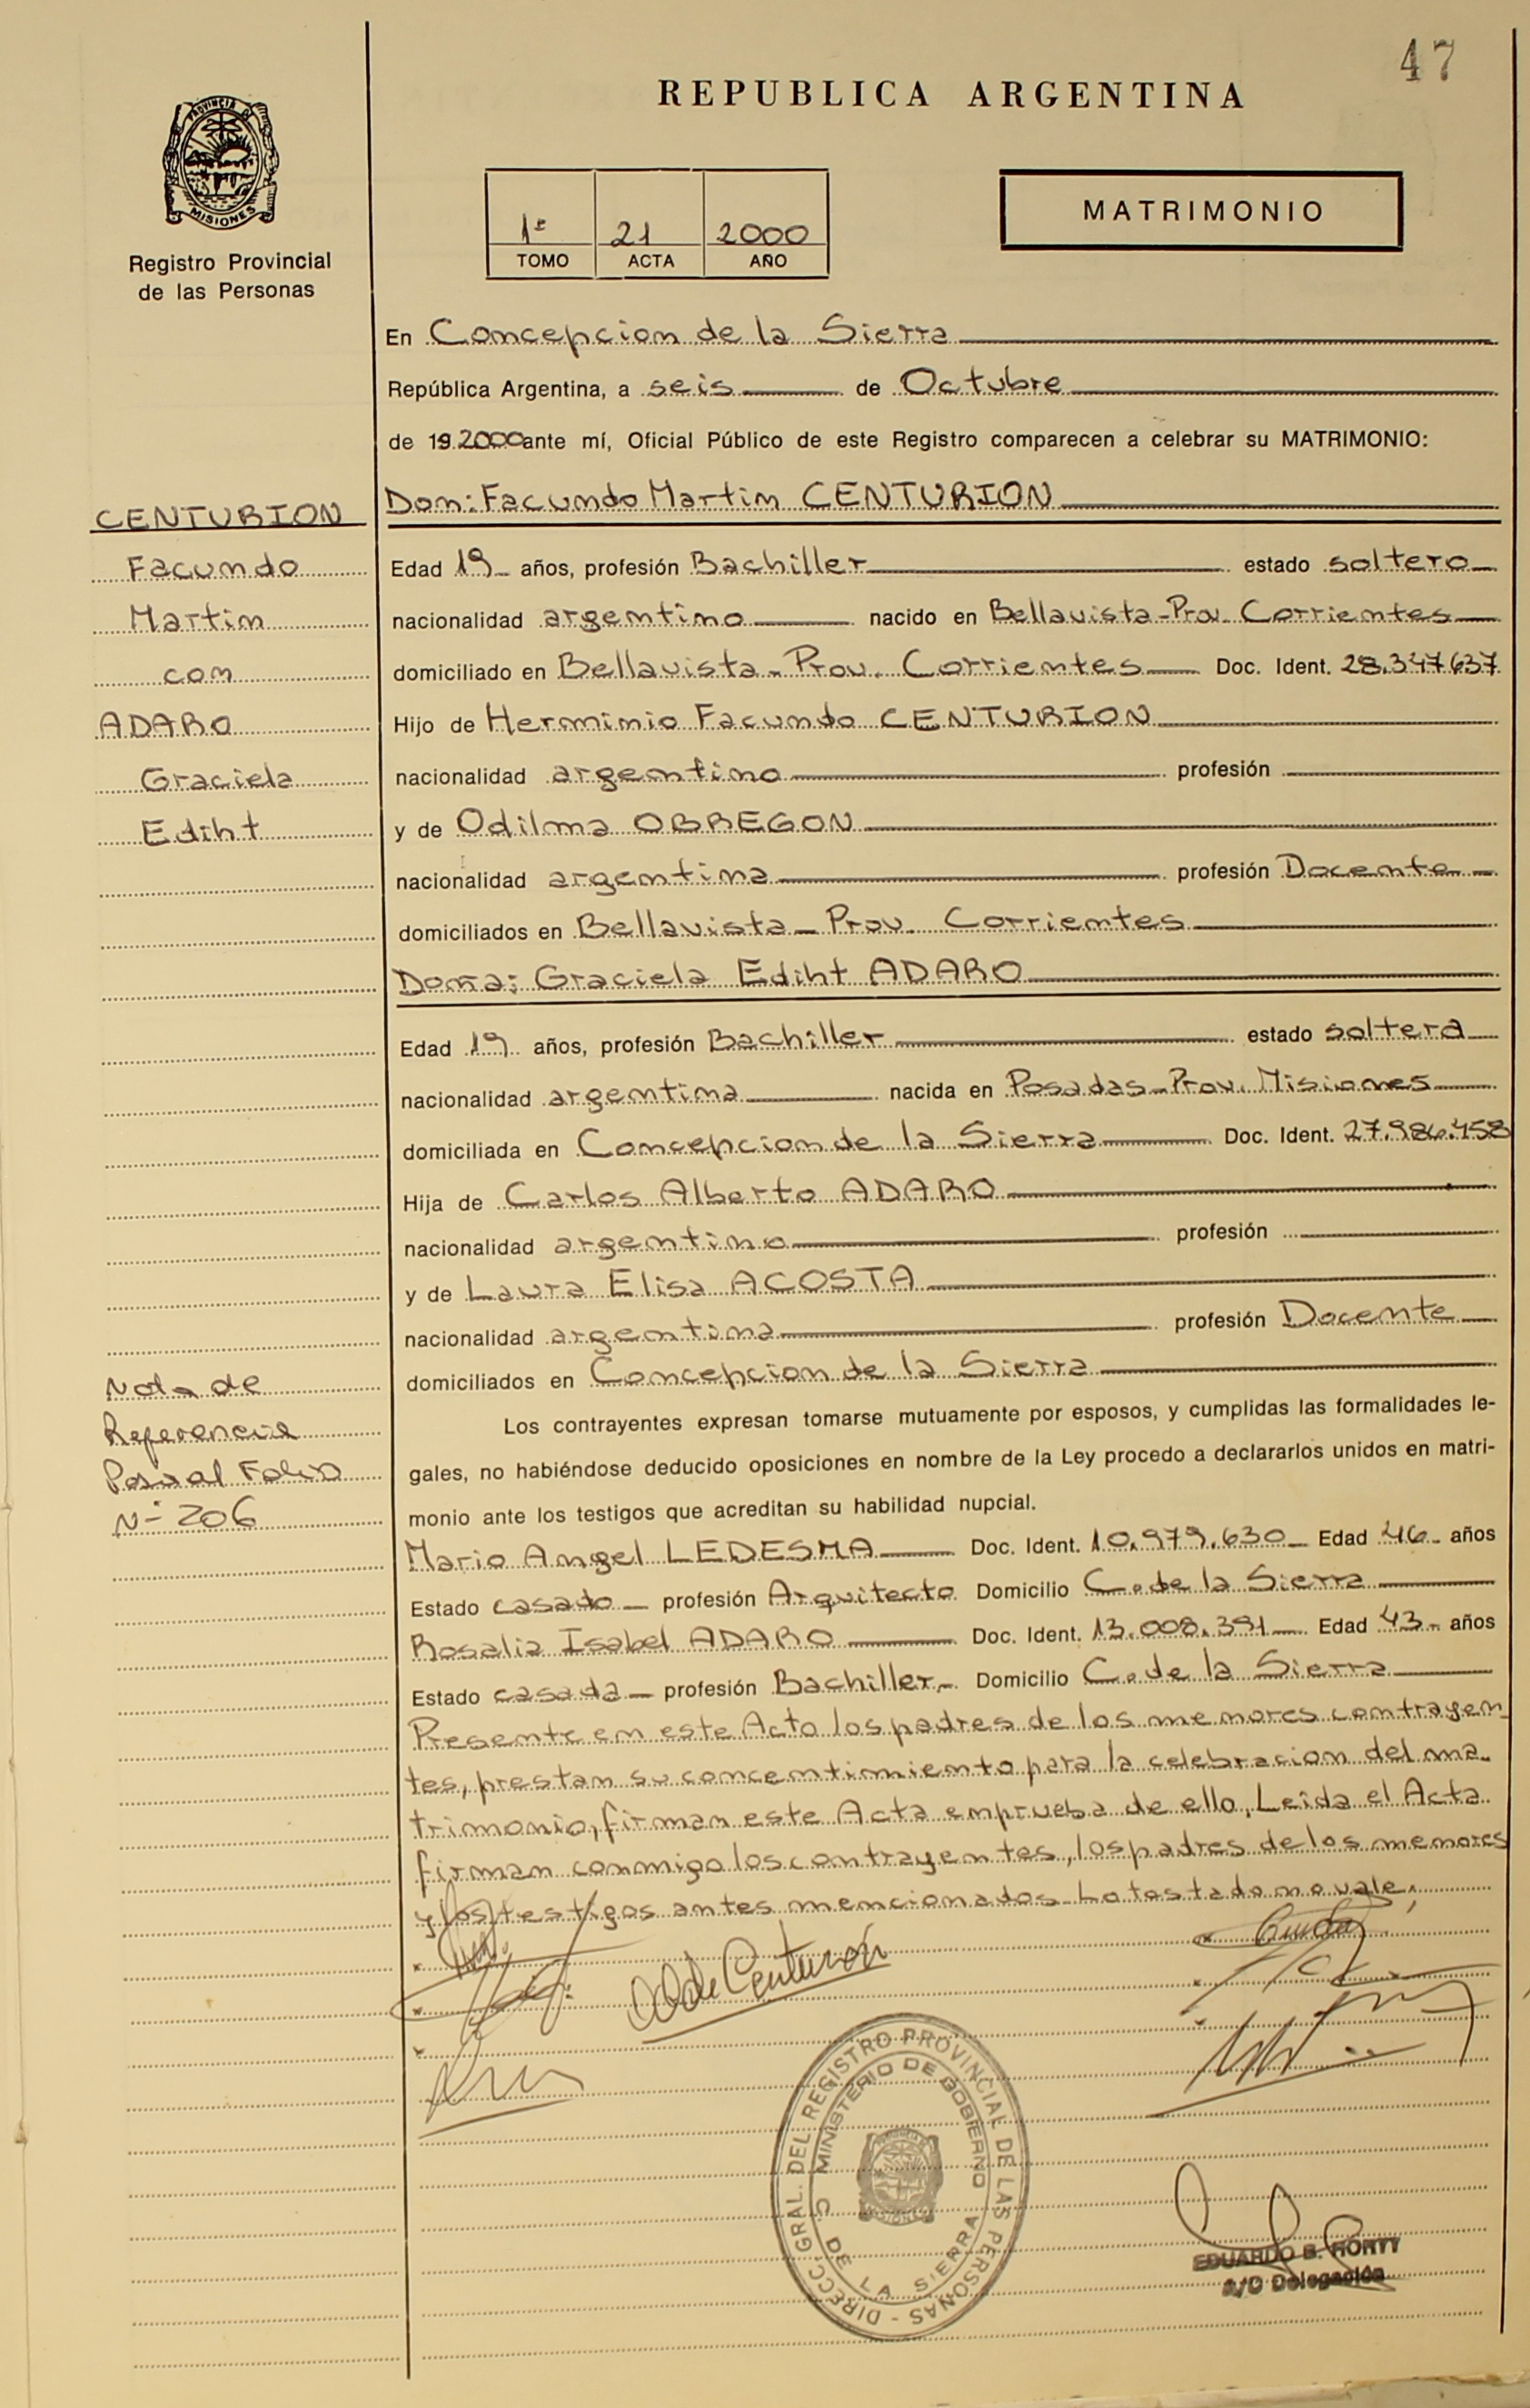 47
REPUBLICA ARGENTINA
PROVINCIA D
MISIONES
Registro Provincial
de las Personas
1º 21 2000
TOMO ACTA AÑO
MATRIMONIO
En Concepcion de la Sierra
República Argentina, a seis de Octubre
de 19 2000 ante mí, Oficial Público de este Registro comparecen a celebrar su MATRIMONIO:
Don: Facundo Martin CENTURION
Edad 19 años, profesión Bachiller estado soltero
nacionalidad argentino nacido en Bellavista-Prov. Corrientes
domiciliado en Bellavista-Prov. Corrientes Doc. Ident. 28.347.637
Hijo de Herminio Facundo CENTURION
nacionalidad argentino profesión
y de Odilma OBREGON
nacionalidad argentina profesión Docente
domiciliados en Bellavista-Prov. Corrientes
Doña: Graciela Ediht ADARO
Edad 19 años, profesión Bachiller estado soltera
nacionalidad argentina nacida en Posadas-Prov. Misiones
domiciliada en Concepcion de la Sierra Doc. Ident. 27.986.458
Hija de Carlos Alberto ADARO
nacionalidad argentino profesión
y de Laura Elisa ACOSTA
nacionalidad argentina profesión Docente
domiciliados en Concepcion de la Sierra
Los contrayentes expresan tomarse mutuamente por esposos, y cumplidas las formalidades le-
gales, no habiéndose deducido oposiciones en nombre de la Ley procedo a declararlos unidos en matri-
monio ante los testigos que acreditan su habilidad nupcial.
Mario Angel LEDESMA Doc. Ident. 10.979.630 Edad 46 años
Estado casado profesión Arquitecto Domicilio C. de la Sierra
Rosalia Isabel ADARO Doc. Ident. 13.008.391 Edad 43 años
Estado casada profesión Bachiller Domicilio C. de la Sierra
Presente en este Acto los padres de los menores contrayen
tes, prestan su concentimiento para la celebracion del ma-
trimonio, firman este Acta emprueba de ello, Leida el Acta
firman conmigo los contrayentes, los padres de los menores
y (los) testigos antes mencionados. Lo testado no vale.
CENTURION
Facundo
Martin
con
ADARO
Graciela
Ediht
Nota de
Referencia
Folio
Nº 206
de Centurión
DIRECC. GRAL. DEL REGISTRO PROVINCIAL DE LAS PERSONAS -
MINISTERIO DE GOBIERNO
C. DE LA SIERRA
MISIONES
EDUARDO B.
a/c Delegación